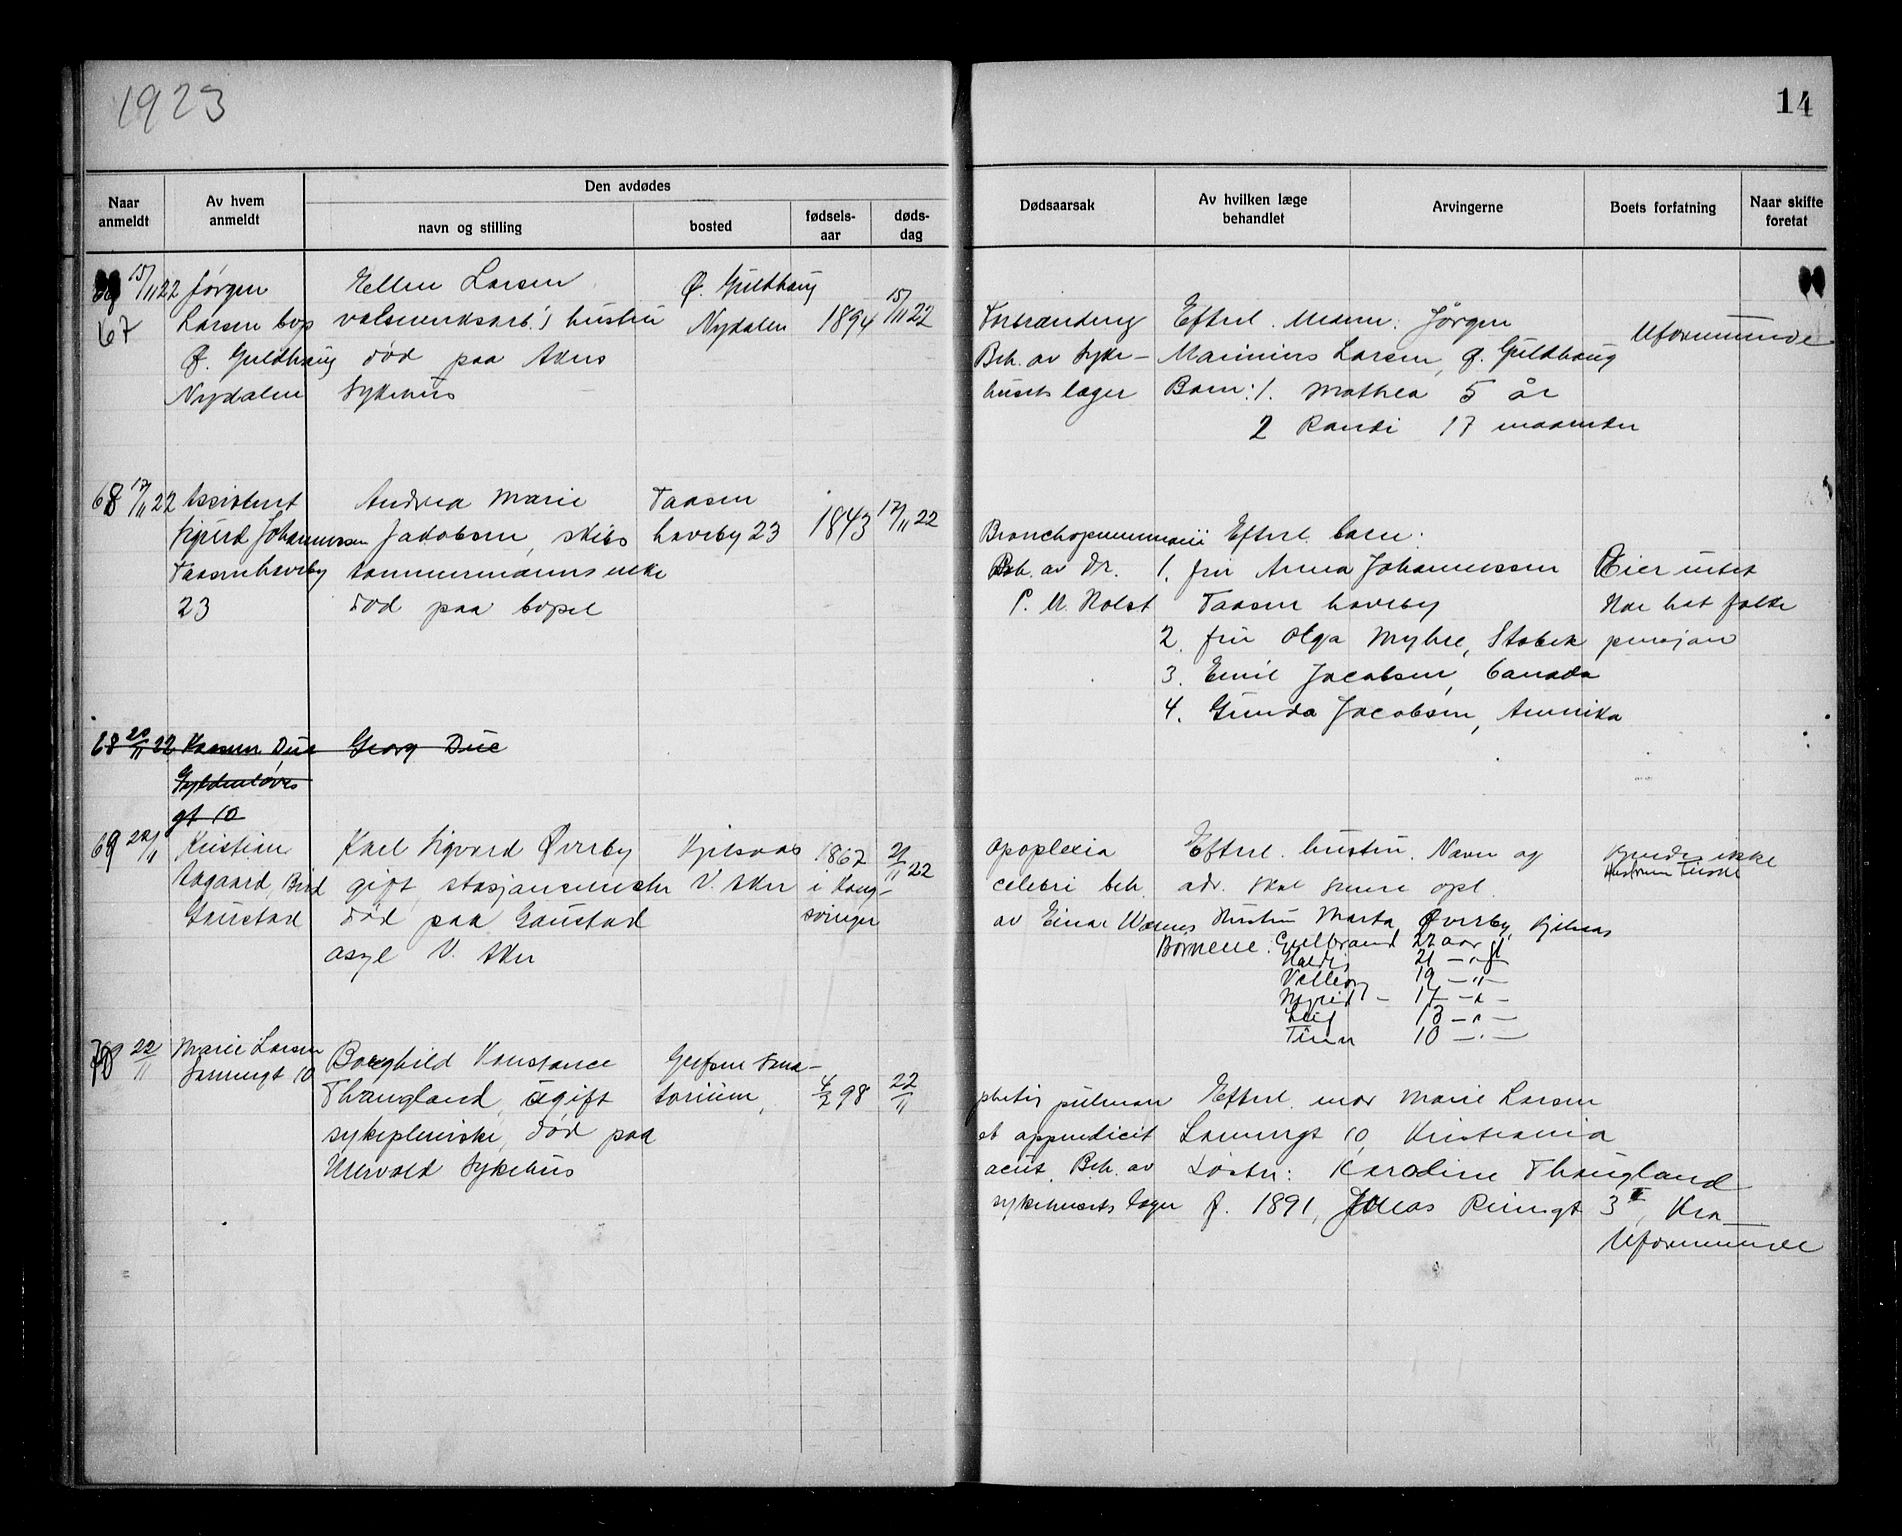 1923
14
Naar anmeldt
Av hvem anmeldt
Den avdødes
navn og stilling
bosted
fødselsaar
dødsdag
Dødsaarsak
Av hvilken læge behandlet
Arvingerne
Boets forfatning
Naar skifte foretat
67 15/11 22 Jørgen Ellen Larsen Ø. Guldhaug
Larsen bop valseverksarb.'s hustru Nydalen 1894 15/11 22
Ø. Guldhaug død paa Akers
Nydalen Sykehus
Forbrænding Efterl. Mann: Jørgen
Beh. av Syke- Marinius Larsen, Ø. Guldhaug Uformuende
husets læger Barn: 1. Mathea 5 år
2 Randi 17 maaneder
68 17/11 22 Assistent Andrea Marie Taasen
Sigurd Johannessen Jacobsen, skibs haveby 23 1843 17/11 22
Taasen haveby tømmermanns enke
23 død paa bopel
Bronchopneumoni Efterl. barn:
Beh. av Dr. 1. fru Anna Johannessen Eier intet
P. M. Holst Taasen haveby Har hat folke
2. fru Olga Myhre, Stabek pensjon
3. Emil Jacobsen, Canada
4. Gunda Jacobsen, Amerika
68 20/11 22 Due Georg Due
Gyldenløves
gt 10
69 22/11 Kristian Karl Sigvard Øverby Kjelsaas 1867 21/11 22
Aagaard, gift, stasjonsmester V. Aker i Kong-
Gaustad død paa Gaustad svinger
asyl V. Aker
Apoplexia Efterl. hustru. Navn og kjendes ikke
celebri beh. adr. skal senere opl.
av Einar Hustru Marta Øverby, Kjelsaas
Børnene: Gulbrand 22 aar gl
21 - " -
19 - " -
17 - " -
Leif 13 - " -
10 - " -
70 22/11 Marie Larsen Borghild Konstance Grefsen Sana-
10 Thaugland, ugift torium, 4/2 98 22/11
sykepleierske, død paa
Ullevold Sykehus
phtisis pulmon Efterl. mor Marie Larsen
et appendicit 10, Kristiania
acut. Beh. av Søster: Karoline Thaugland
sykehusets læger f. 1891, Jonas Reinsgt 3 II, Kra
Uformuende